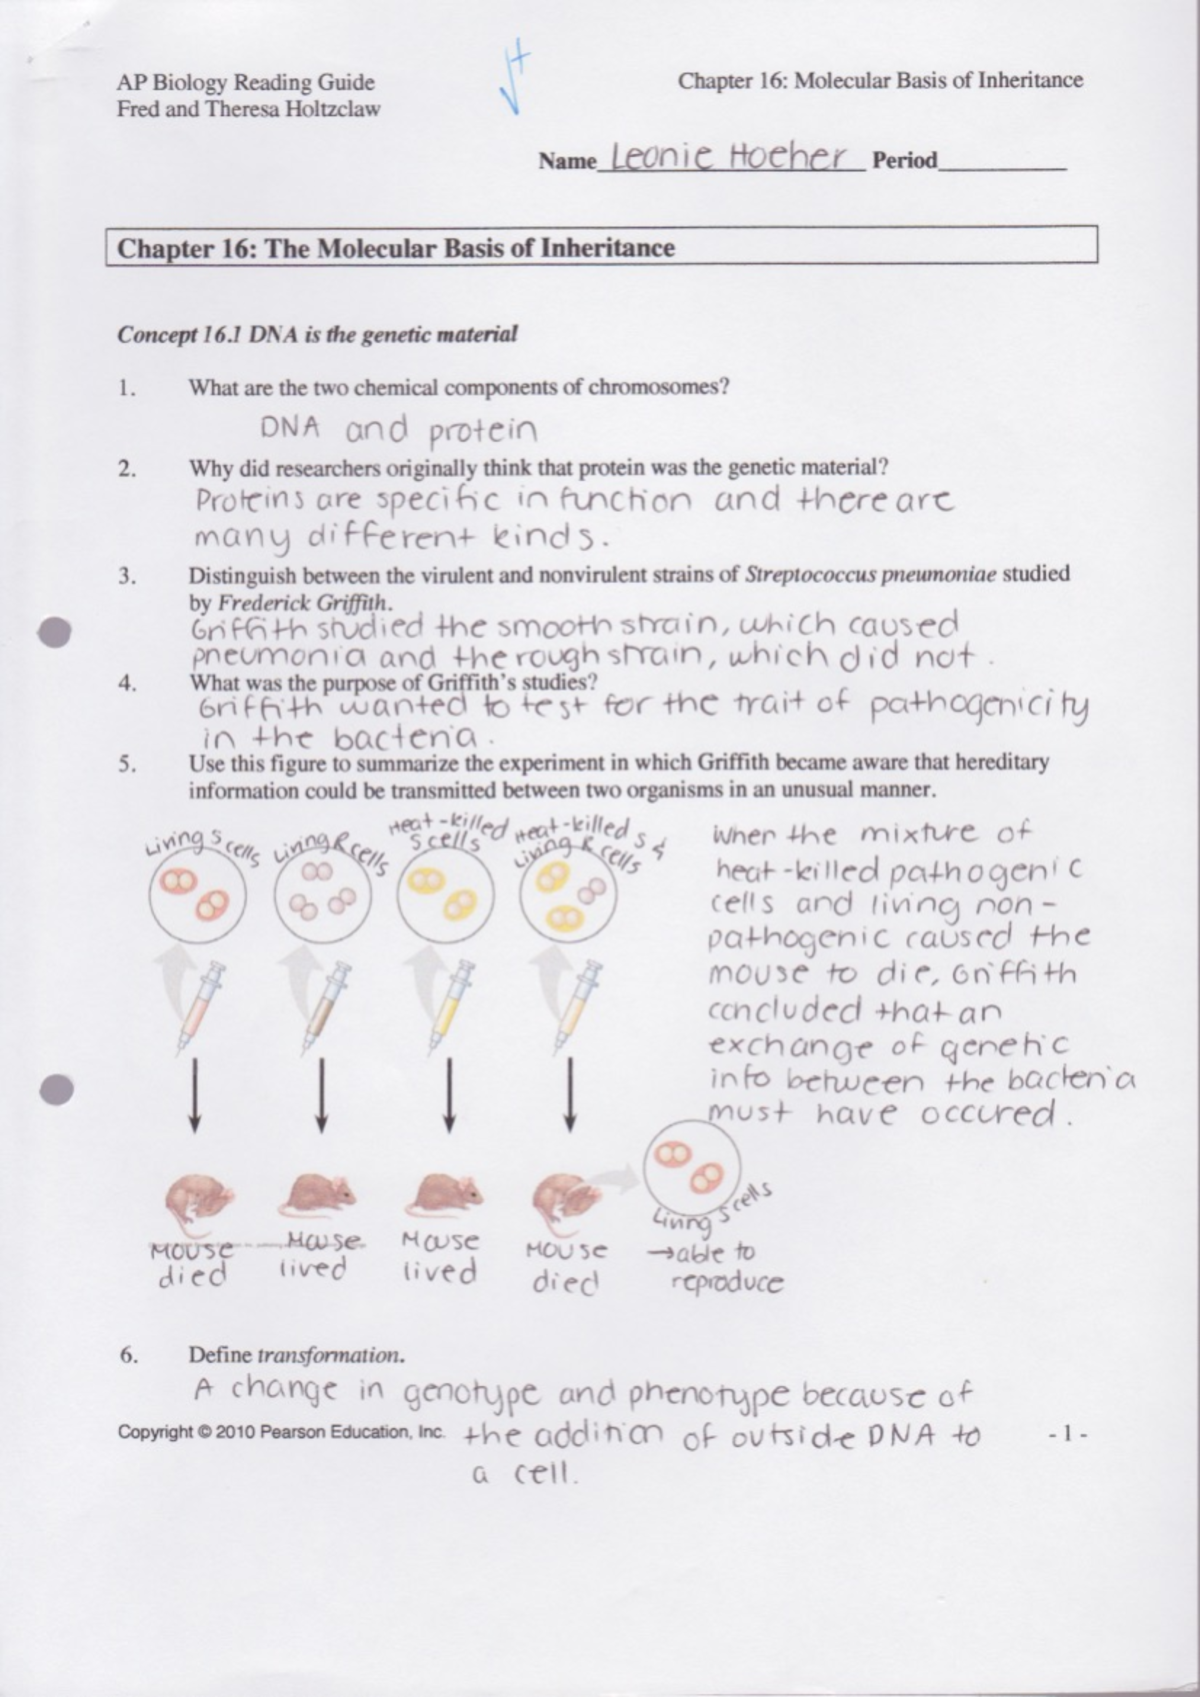 AP Biology Reading Guide
Chapter 16: Molecular Basis of Inheritance
Fred and Theresa Holtzclaw
Name Leonie Hoeher Period
Chapter 16: The Molecular Basis of Inheritance
Concept 16.1 DNA is the genetic material
1. What are the two chemical components of chromosomes?
DNA and protein
2. Why did researchers originally think that protein was the genetic material?
Proteins are specific in function and there are
many different kinds.
3. Distinguish between the virulent and nonvirulent strains of Streptococcus pneumoniae studied
by Frederick Griffith.
Griffith studied the smooth strain, which caused
pneumonia and the rough strain, which did not.
4. What was the purpose of Griffith's studies?
Griffith wanted to test for the trait of pathogenicity
in the bacteria.
5. Use this figure to summarize the experiment in which Griffith became aware that hereditary
information could be transmitted between two organisms in an unusual manner.
Living S cells
Living R cells
Heat-killed
S cells
Heat-killed S &
Living R cells
When the mixture of
heat-killed pathogenic
cells and living non-
pathogenic caused the
mouse to die, Griffith
concluded that an
exchange of genetic
info between the bacteria
must have occured.
Mouse
died
Mouse
lived
Mouse
lived
Mouse
died
Living S cells
→able to
reproduce
6. Define transformation.
A change in genotype and phenotype because of
the addition of outside DNA to
a cell.
Copyright © 2010 Pearson Education, Inc.
- 1 -